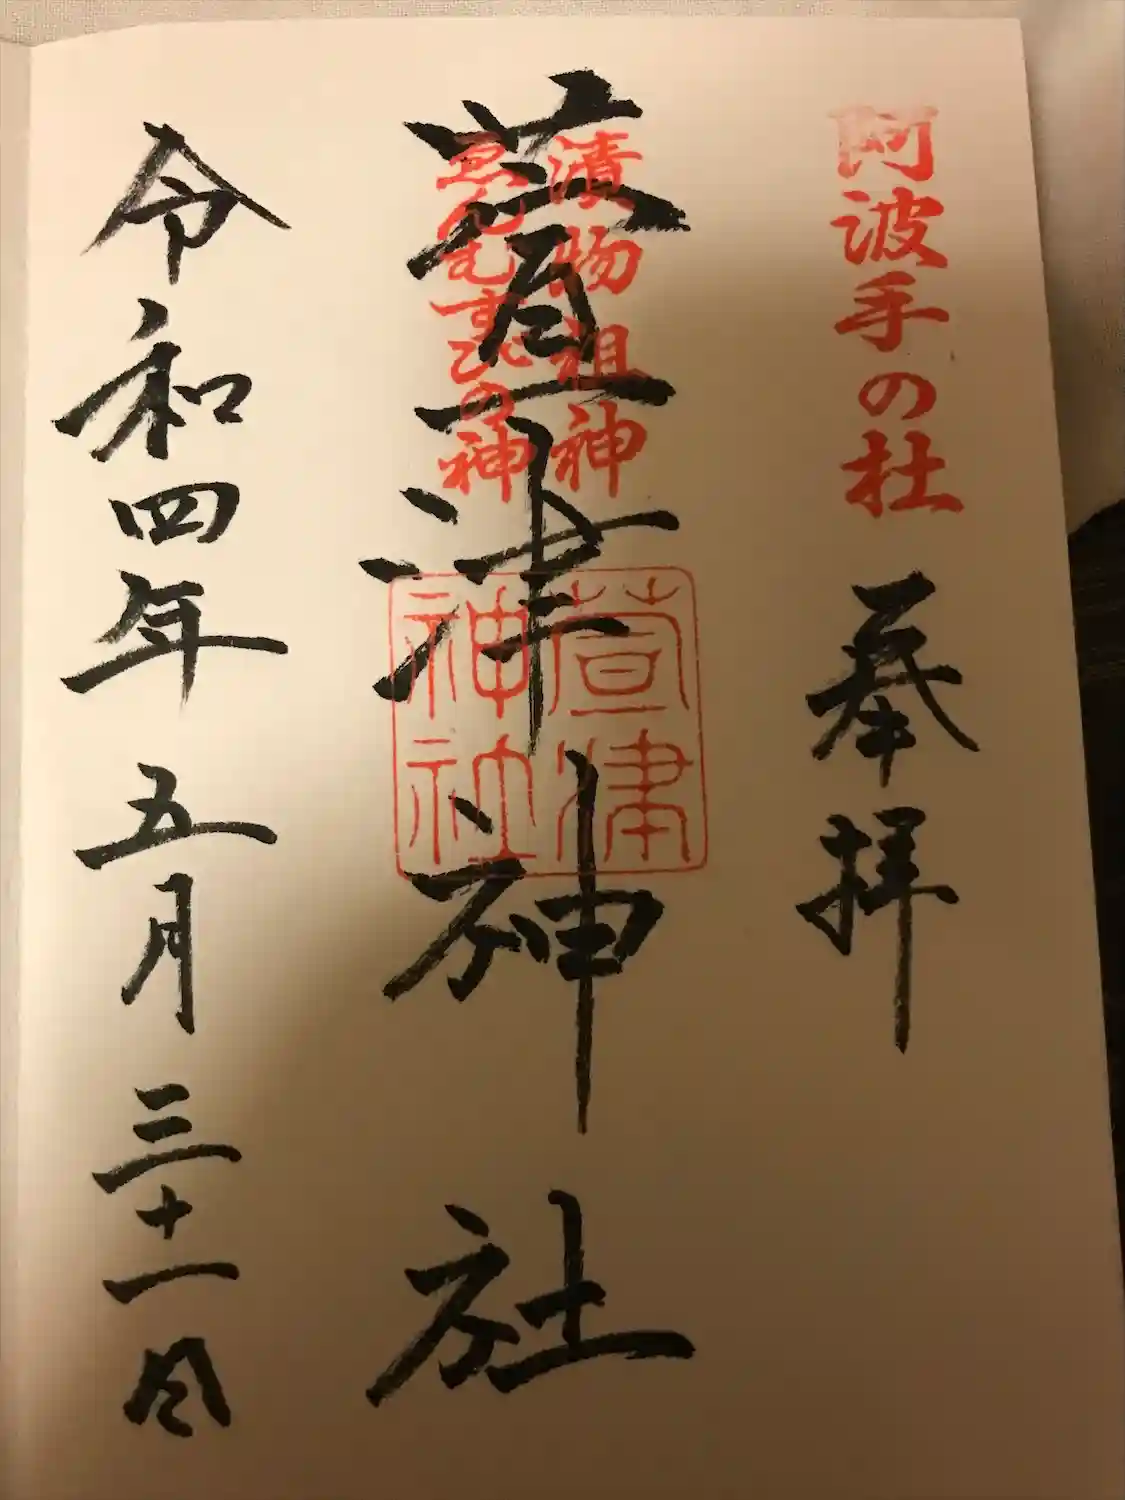 阿波手の杜
奉拝
漬物祖神
ゑんむすびの神
萱津神社
萱津
神社
令和四年五月三十一日